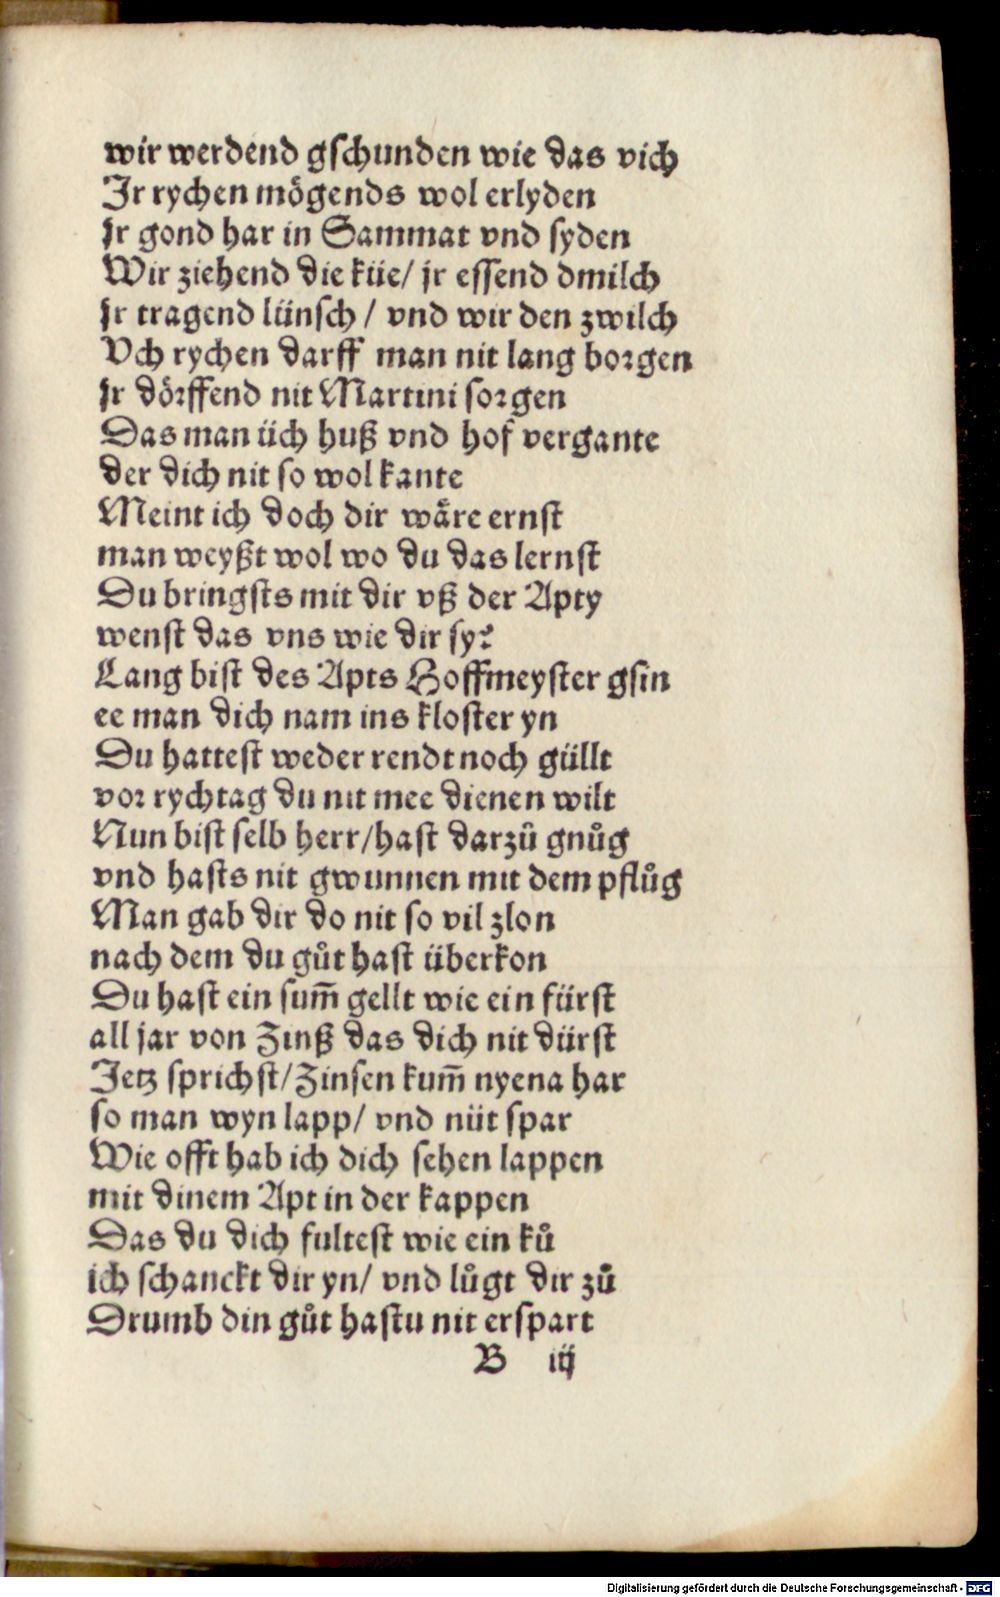 wir werdend gschunden wie das vich
Jr rychen mögends wol erlyden
jr gond har in Sammat vnd syden
Wir ziehend die küe/ jr essend dmilch
jr tragend lünsch / vnd wir den zwilch
Vch rychen darff man nit lang borgen
jr dörffend nit Martini sorgen
Das man üch huß vnd hof vergante
der dich nit so wol kante
Meint ich doch dir wåre ernst
man weyßt wol wo du das lernst
Du bringsts mit dir vß der Apty
wenst das vns wie dir sy?
Lang bist des Apts Hoffmeyster gsin
ee man dich nam ins kloster yn
Du hattest weder rendt noch güllt
vor rychtag du nit mee dienen wilt
Nun bist selb herr/hast darzů gnůg
vnd hasts nit gwunnen mit dem pflůg
Man gab dir do nit so vil zlon
nach dem du gůt hast überkon
Du hast ein sum̃ gellt wie ein fürst
all jar von Zinß das dich nit dürst
Jetz sprichst/Zinsen kum̃ nyena har
so man wyn lapp/ vnd nüt spar
Wie offt hab ich dich sehen lappen
mit dinem Apt in der kappen
Das du dich fultest wie ein ků
ich schanckt dir yn/ vnd lůgt dir zů
Drumb din gůt hastu nit erspart
B iij
Digitalisierung gefördert durch die Deutsche Forschungsgemeinschaft - DFG